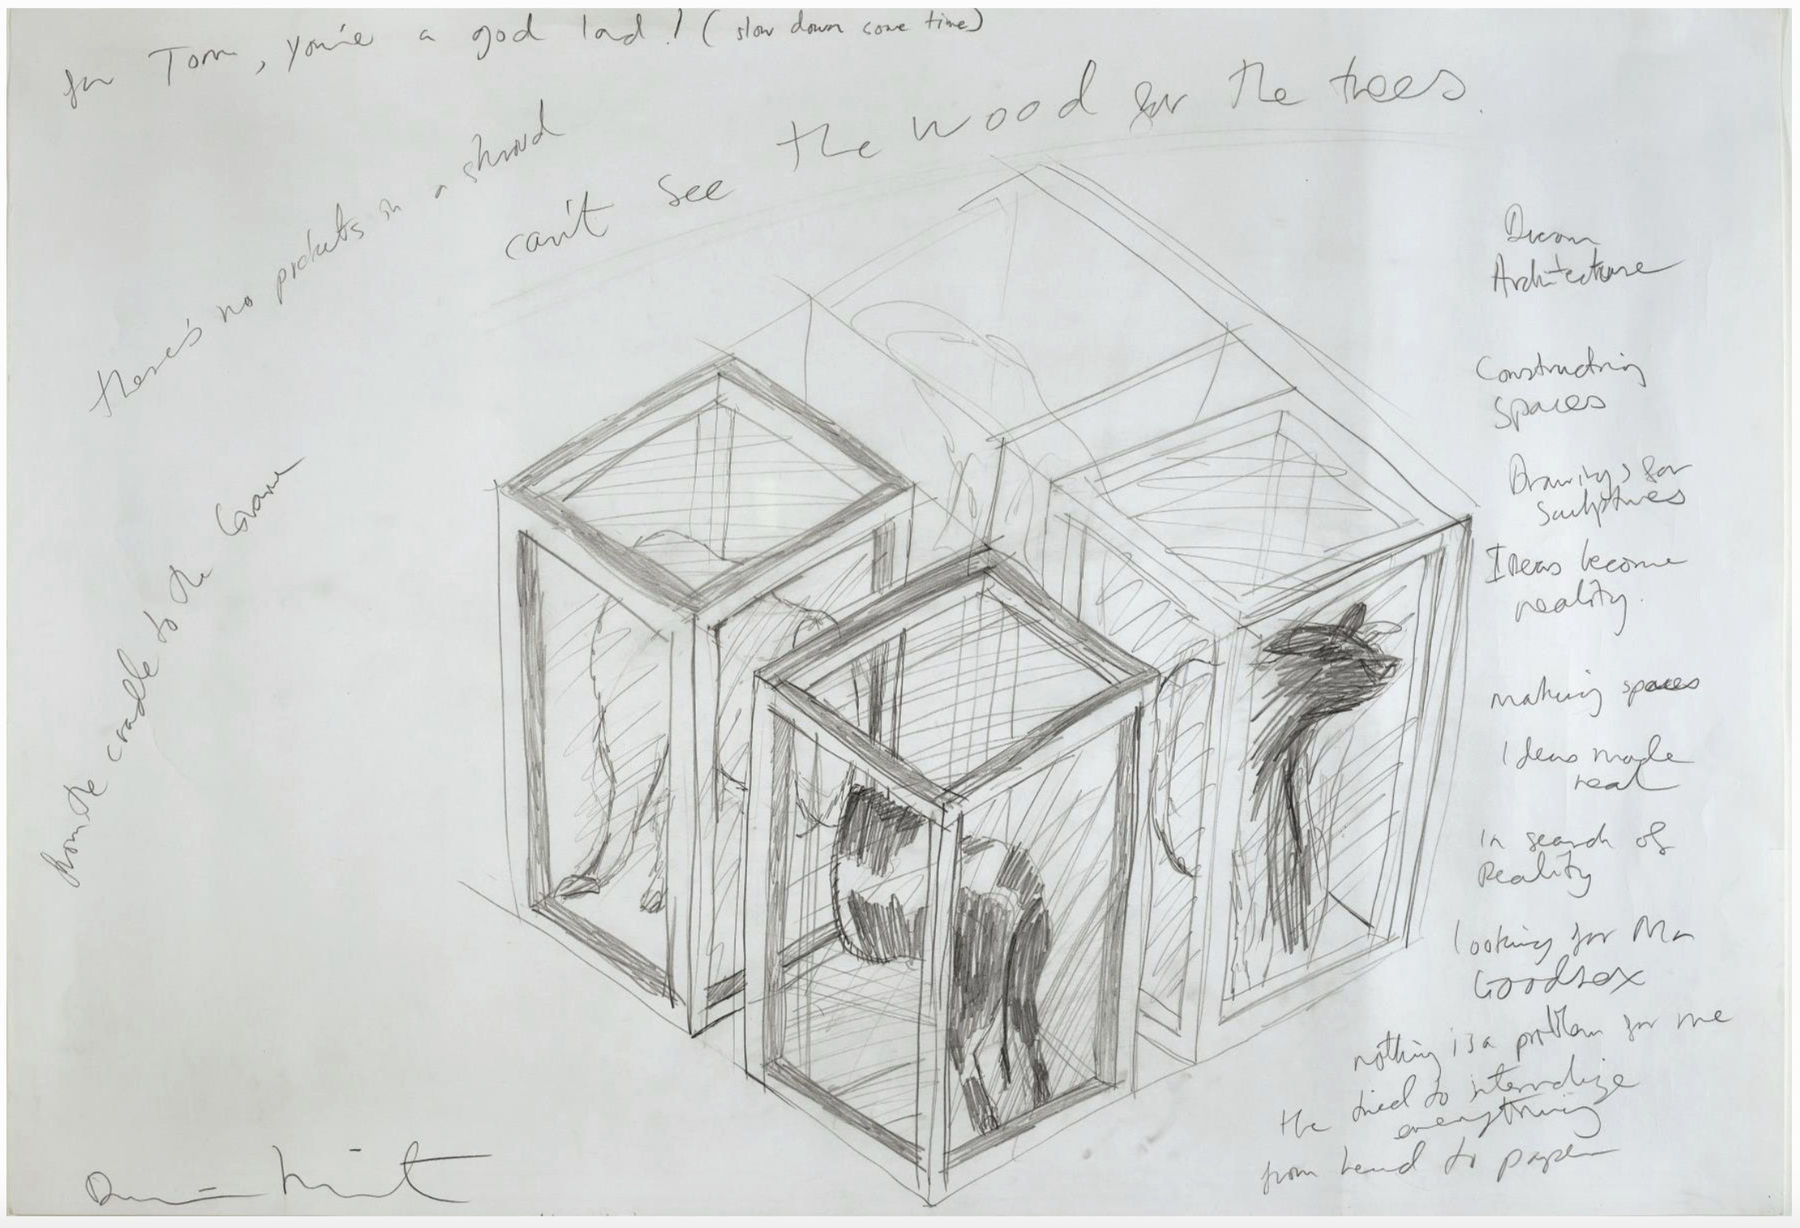 for Tom, you're a god lad! (slow down some time)
can't see the wood for the trees.
there's no pockets in a shroud
from the cradle to the Grave
Dream
Architecture
Constructing
Spaces
Drawings for
Sculptures
Ideas become
reality.
making spaces
Ideas made
real
in search of
Reality
looking for Mr
Goodsex
nothing is a problem for me
He tried to internalize
everything
from head to paper
Damien Hirst